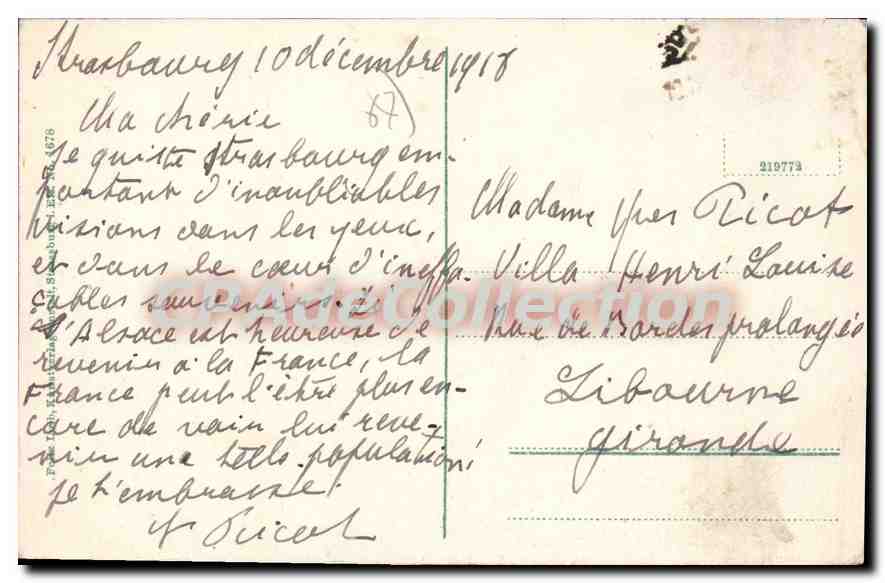 Strasbourg 10 décembre 1918
67
Ma chérie
Je quitte Strasbourg em-
portant d'inoubliables
visions dans les yeux,
et dans le cœur d'ineffa-
çables souvenirs. Si
l'Alsace est heureuse de
revenir à la France, la
France peut l'être plus en-
core de voir lui reve-
nir une telle population!
Je t'embrasse.
Y Picot
219772
Madame Yves Picot
Villa Henri Louise
Rue de Bordes prolongée
Libourne
Gironde
CPAdeCollection
Els. No. 4678